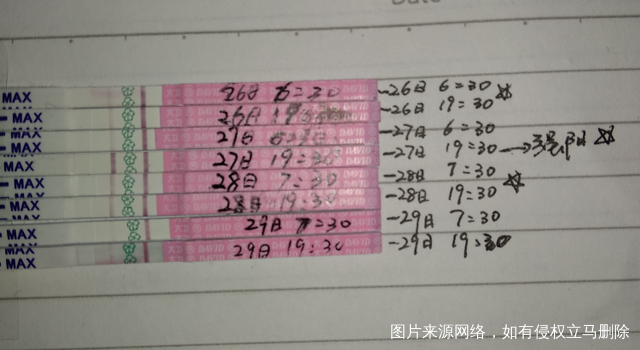 Date
MAX 26日 6:30 -26日 6:30 ☆
MAX 26日 19:30 -26日 19:30
MAX 27日 6:30 -27日 6:30
MAX 27日 19:30 -27日 19:30 → 强阳 ☆
MAX 28日 7:30 -28日 7:30
MAX 28日 19:30 -28日 19:30
MAX 29日 7:30 -29日 7:30
MAX 29日 19:30 -29日 19:30
图片来源网络，如有侵权立马删除